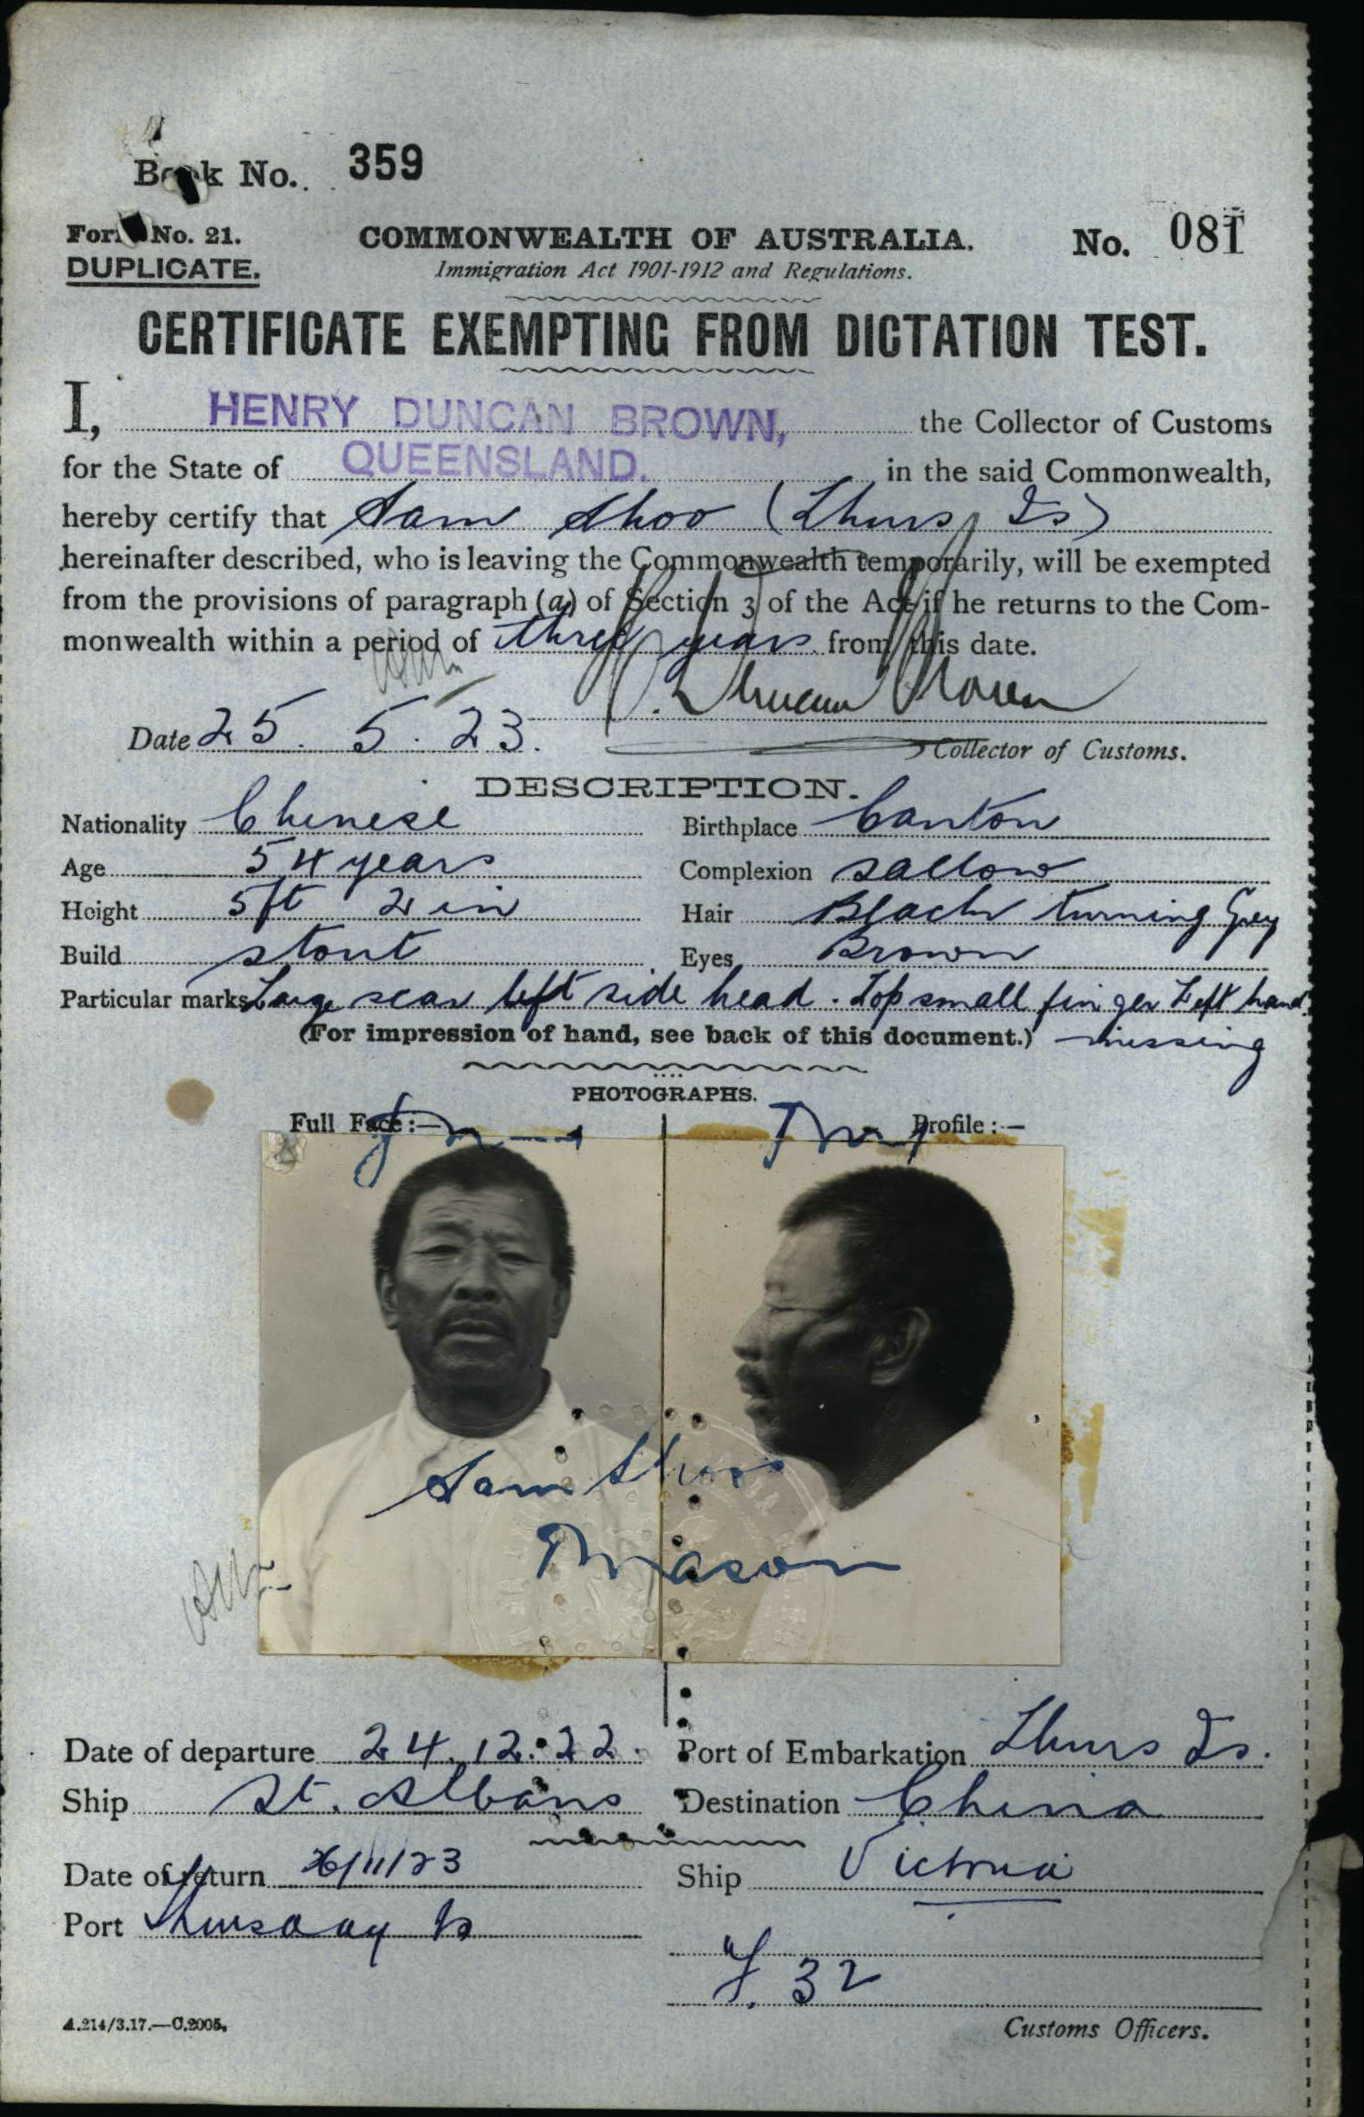 Book No. 359
Form No. 21. COMMONWEALTH OF AUSTRALIA. No. 081
DUPLICATE. Immigration Act 1901-1912 and Regulations.
CERTIFICATE EXEMPTING FROM DICTATION TEST.
I, HENRY DUNCAN BROWN, the Collector of Customs
for the State of QUEENSLAND. in the said Commonwealth,
hereby certify that Sam Shoo (Thurs Is)
hereinafter described, who is leaving the Commonwealth temporarily, will be exempted
from the provisions of paragraph (a) of Section 3 of the Act if he returns to the Com-
monwealth within a period of three years from this date.
H. Duncan Brown
Date 25.5.23. Collector of Customs.
DESCRIPTION.
Nationality Chinese Birthplace Canton
Age 54 years Complexion sallow
Height 5ft 2in Hair Black turning Grey
Build stout Eyes Brown
Particular marks Large scar left side head. Top small finger Left hand
(For impression of hand, see back of this document.) missing
PHOTOGRAPHS.
Full Face:— Profile:—
Sam Shoo
Mason
Date of departure 24.12.22. Port of Embarkation Thurs Is.
Ship St. Albans Destination China
Date of return 26/11/23 Ship Victoria
Port Thursday Is
F. 32
A.214/3.17.—C.2005. Customs Officers.